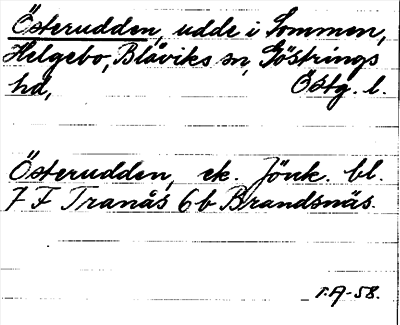 Österudden, udde i Sommen,
Helgebo, Blåviks sn, Göstrings
hd, Östg. l.
Österudden, ek. Jönk. bl.
7 F Tranås 6 b Brandsnäs.
T.A-58.